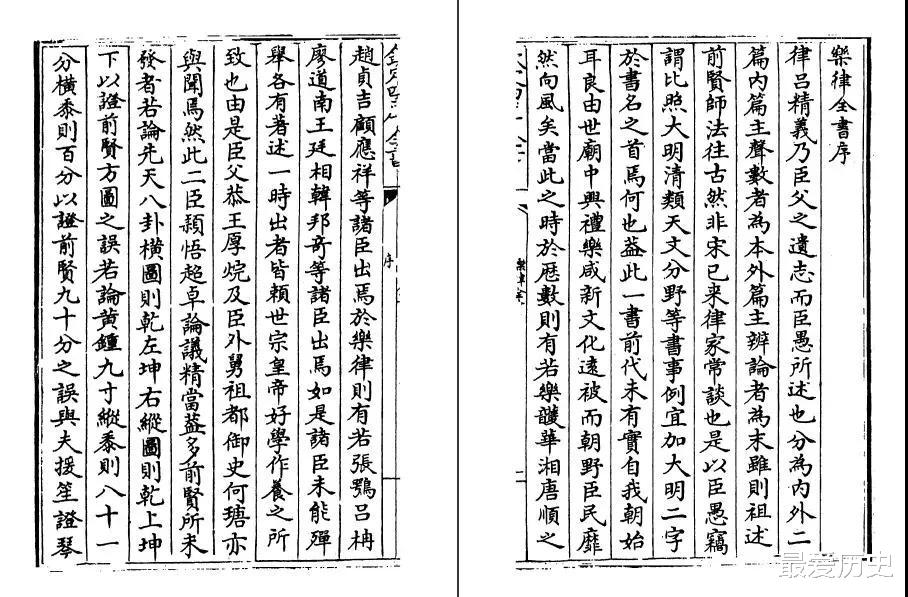 樂律全書序
律呂精義乃臣父之遺志而臣愚所述也分為内外二
篇内篇主聲數者為本外篇主辨論者為末雖則祖述
前賢師法往古然非宋已來律家常談也是以臣愚竊
謂比照大明清類天文分野等書事例宜加大明二字
於書名之首焉何也蓋此一書前代未有實自我朝始
耳良由世廟中興禮樂咸新文化遠被而朝野臣民靡
然向風矣當此之時於厯數則有若樂頀華湘唐順之
序
趙貞吉顧應祥等諸臣出焉於樂律則有若張鶚呂柟
廖道南王廷相韓邦奇等諸臣出焉如是諸臣未能殫
舉各有著述一時出者皆頼世宗皇帝好學作養之所
致也由是臣父恭王厚烷及臣外舅祖都御史何瑭亦
與聞焉然此二臣頴悟超卓論議精當蓋多前賢所未
發者若論先天八卦横圖則乾左坤右縱圖則乾上坤
下以證前賢方圖之誤若論黄鍾九寸縱黍則八十一
分横黍則百分以證前賢九十分之誤與夫援笙證琴
最爱历史